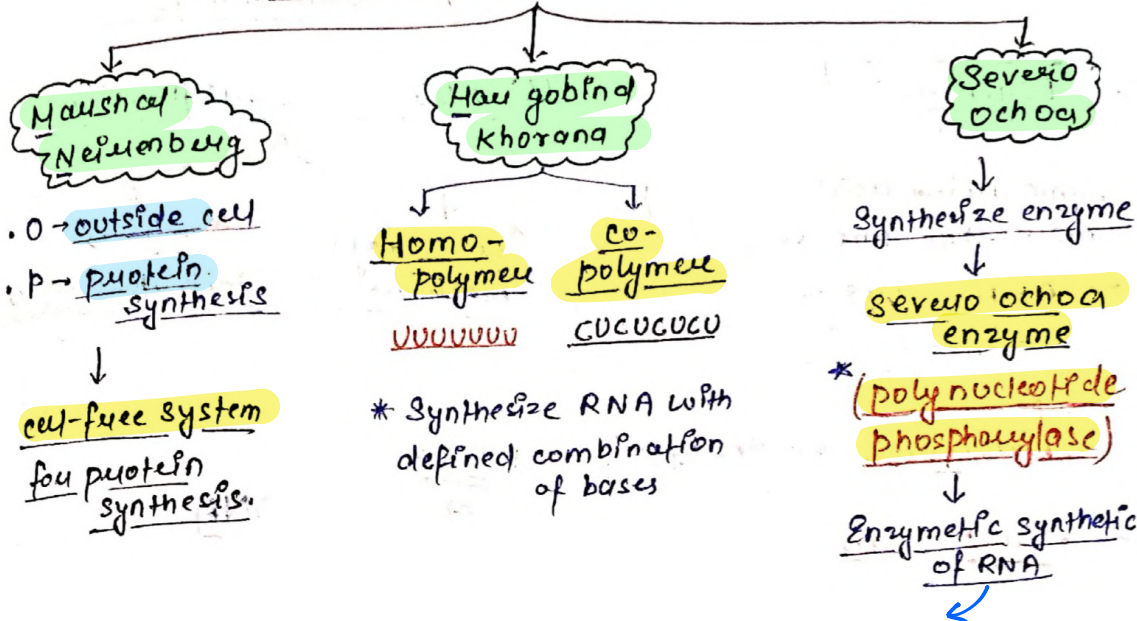 Marshal
Neirenberg
. O → outside cell
. P → protein
synthesis
cell-free system
for protein
synthesis.
Har gobind
Khorana
Homo-
polymer
UUUUUUU
co-
polymer
CUCUCUCU
* Synthesize RNA with
defined combination
of bases
Severo
ochoa
Synthesize enzyme
severo ochoa
enzyme
* (polynucleotide
phosphorylase)
Enzymetic synthetic
of RNA